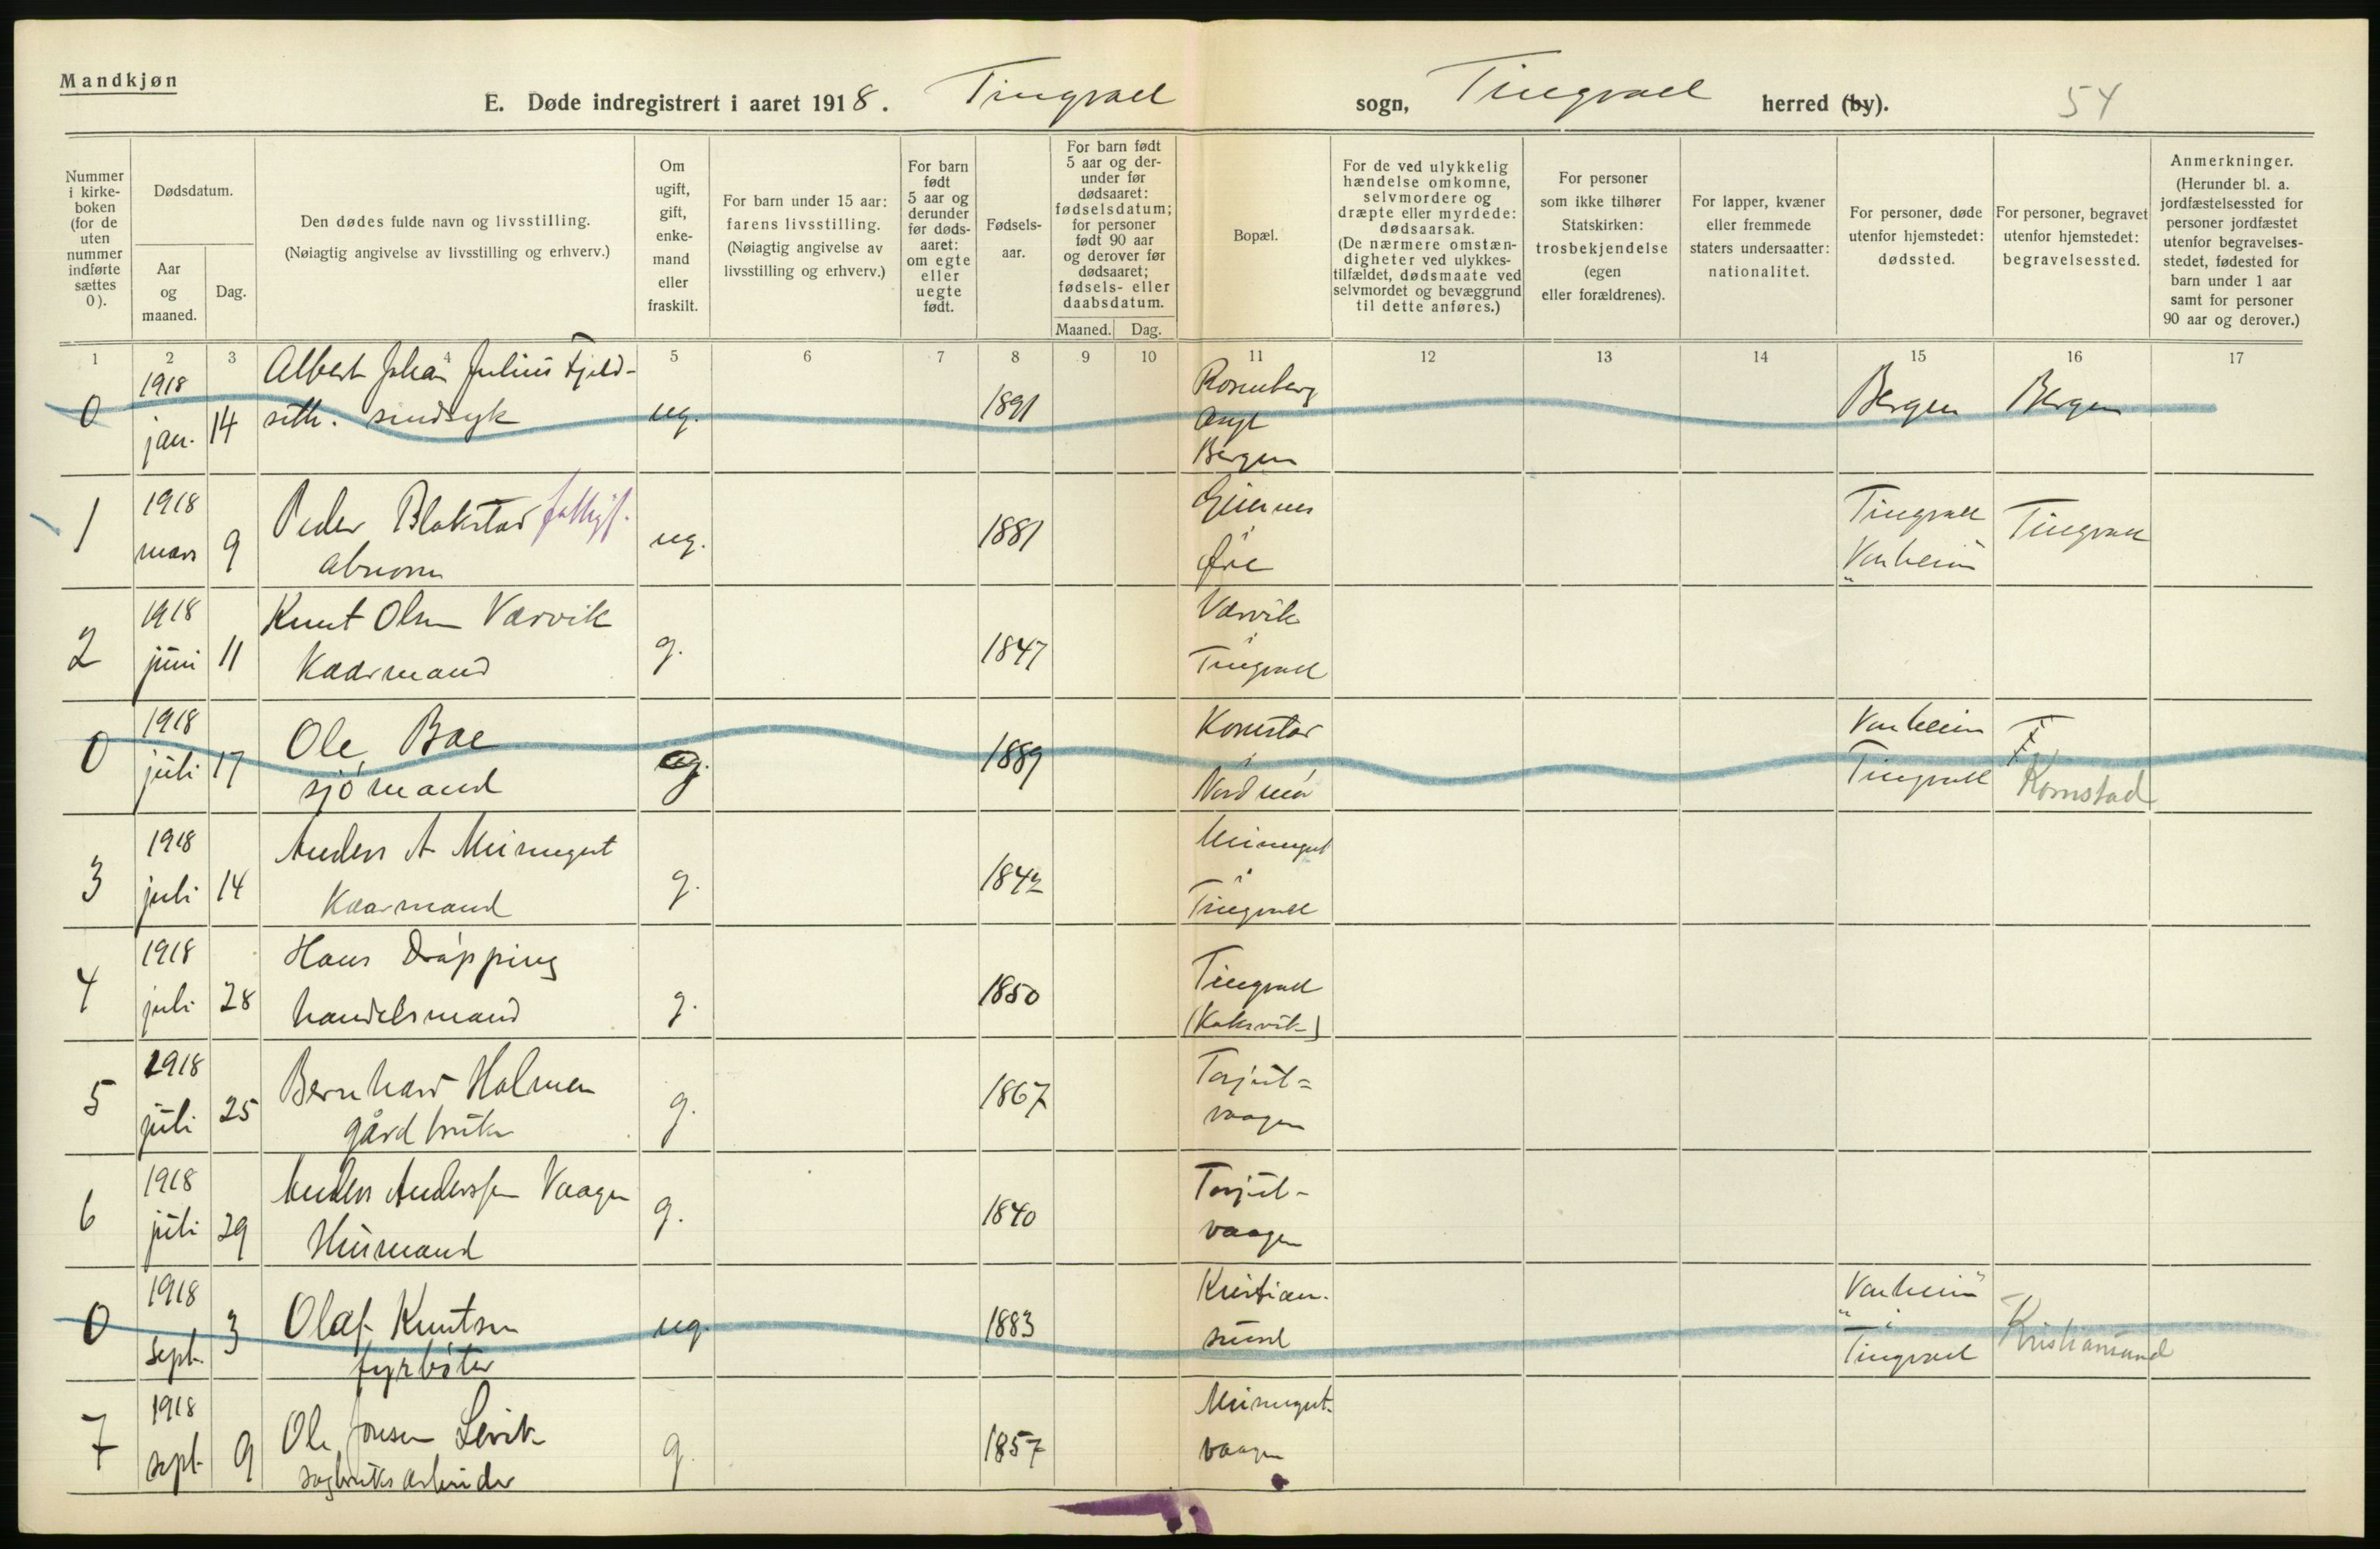 Mandkjøn
E. Døde indregistrert i aaret 1918. Tingvoll sogn, Tingvoll herred (by). 54
Nummer i kirke- boken (for de uten nummer indførte sættes 0).
Dødsdatum.
Aar og maaned.
Dag.
Den dødes fulde navn og livsstilling.
(Nøiagtig angivelse av livsstilling og erhverv.)
Om ugift, gift, enke- mand eller fraskilt.
For barn under 15 aar: farens livsstilling. (Nøiagtig angivelse av livsstilling og erhverv.)
For barn født 5 aar og derunder før døds- aaret: om egte eller uegte født.
Fødsels- aar.
For barn født 5 aar og der- under før dødsaaret: fødselsdatum; for personer født 90 aar og derover før dødsaaret; fødsels- eller daabsdatum.
Maaned. Dag.
Bopæl.
For de ved ulykkelig hændelse omkomne, selvmordere og dræpte eller myrdede: dødsaarsak. (De nærmere omstæn- digheter ved ulykkes- tilfældet, dødsmaate ved selvmordet og bevæggrund til dette anføres.)
For personer som ikke tilhører Statskirken: trosbekjendelse (egen eller forældrenes).
For lapper, kvæner eller fremmede staters undersaatter: nationalitet.
For personer, døde utenfor hjemstedet: dødssted.
For personer, begravet utenfor hjemstedet: begravelsessted.
Anmerkninger. (Herunder bl. a. jordfæstelsessted for personer jordfæstet utenfor begravelses- stedet, fødested for barn under 1 aar samt for personer 90 aar og derover.)
1 2 3 4 5 6 7 8 9 10 11 12 13 14 15 16 17
0 1918 jan. 14 Albert Johan Julius Fjeld-
seth. sindsyk ug. 1891 Rosenberg Asyl Bergen Bergen Bergen
1 1918 mars 9 Peder Blakstad fattigf.
abnorm ug. 1881 Øre Tingvoll "Vonheim" Tingvoll
2 1918 juni 11 Knut Olsen Værvik
Kaarmand g. 1847 Værvik i Tingvoll
0 1918 juli 17 Ole Boe
sjömand g. 1889 Kornstad i Nordmör Vonheim Tingvoll Kornstad
3 1918 juli 14 Anders A Meisingset
Kaarmand g. 1842 Meisingset i Tingvoll
4 1918 juli 28 Hans Dröpping
handelsmand g. 1850 Tingvoll (Koksvik)
5 1918 juli 25 Bernhard Holmen
gårdbruker g. 1867 Torjul= vaagen
6 1918 juli 29 Anders Anderssen Vaagen
Husmand g. 1840 Torjul- vaagen
0 1918 sept. 3 Olaf Knutsen
fyrböter ug. 1883 Kristian- sund "Vonheim" i Tingvoll Kristiansund
7 1918 sept. 9 Ole Jonsen Levik
sagbruksarbeider g. 1857 Meisingset- vaagen